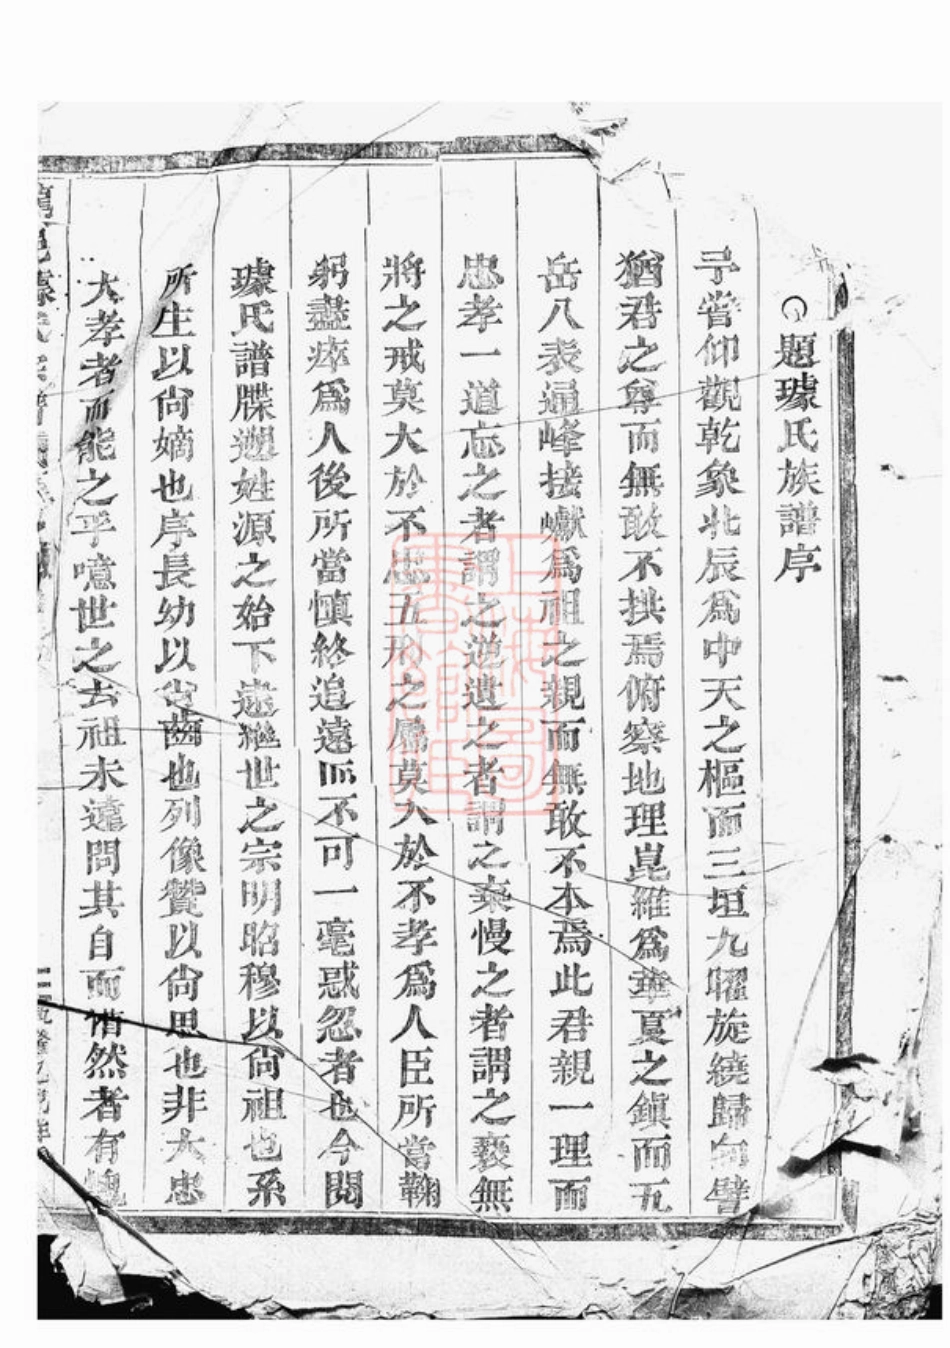 題璩氏族譜序
予嘗仰觀乾象北辰爲中天之樞而三垣九曜旋繞歸向譬
猶君之尊而無敢不拱焉俯察地理崑維爲華夏之鎭而五
岳八表通峰接巘爲祖之親而無敢不本焉此君親一理而
忠孝一道忘之者謂之逆遺之者謂之棄慢之者謂之褻無
將之戒莫大於不忠五刑之屬莫大於不孝爲人臣所當鞠
躬盡瘁爲人後所當愼終追遠而不可一毫惑忽者也今閱
璩氏譜牒遡姓源之始下逮繼世之宗明昭穆以尙祖也系
所生以尙嫡也序長幼以尙齒也列像贊以尙思也非大忠
大孝者而能之乎噫世之去祖未遠問其自而惜然者有愧